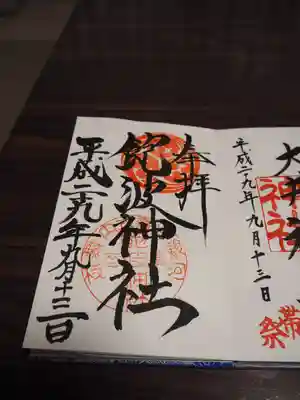 奉拝
飽波神社
平成二九年九月十三日
大井神社
平成二九年九月十三日
帯祭